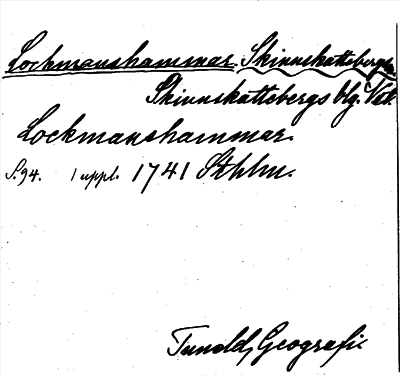 Lockmanshammar. Skinnskattebergs.
Skinnskattebergs blg. Vstl.
Lockmanshammar.
S. 94. 1 uppl. 1741 Sthlm.
Tuneld, Geografi